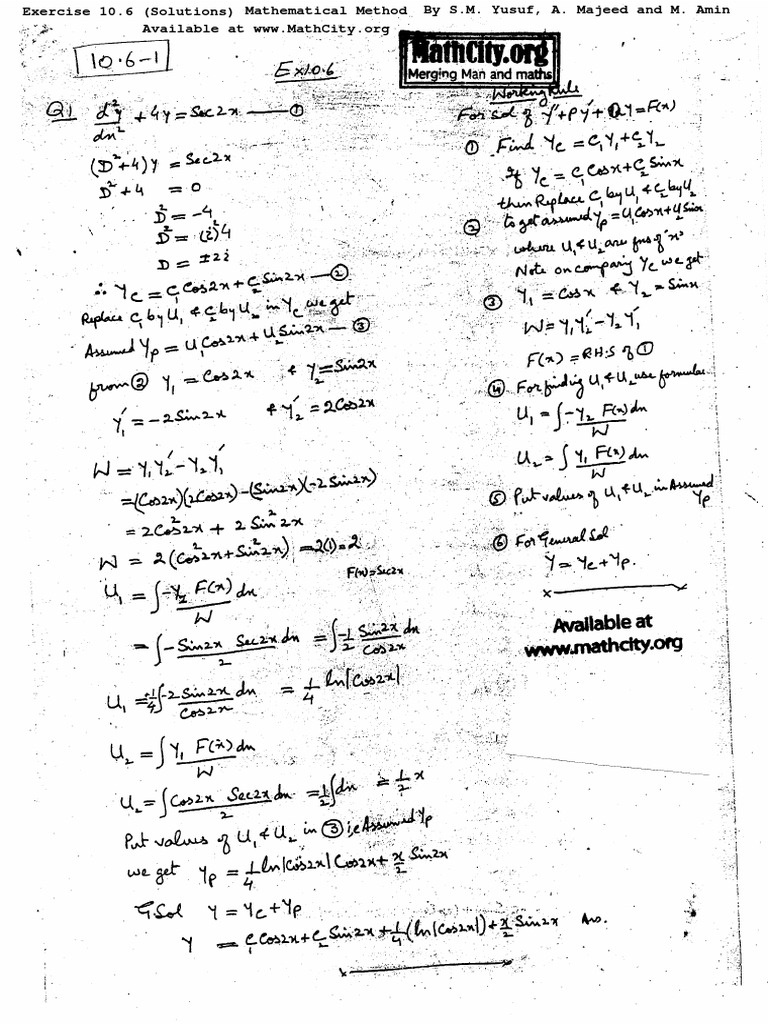 Exercise 10.6 (Solutions) Mathematical Method By S.M. Yusuf, A. Majeed and M. Amin
Available at www.MathCity.org
MathCity.org
Merging Man and maths
10.6-1
Ex10.6
Q1 d²y/dx² + 4y = Sec2x — ①
(D²+4)y = Sec2x
D²+4 = 0
D² = -4
D² = (i²)4
D = ±2i
∴ Yc = C₁Cos2x + C₂Sin2x — ②
Replace C₁ by U₁ & C₂ by U₂ in Yc we get
Assumed Yp = U₁Cos2x + U₂Sin2x — ③
from ② Y₁ = Cos2x & Y₂ = Sin2x
Y₁′ = -2Sin2x & Y₂′ = 2Cos2x
W = Y₁Y₂′ - Y₂Y₁′
= (Cos2x)(2Cos2x) - (Sin2x)(-2Sin2x)
= 2Cos²2x + 2Sin²2x
W = 2(Cos²2x + Sin²2x) = 2(1) = 2
F(x) = Sec2x
U₁ = ∫ -Y₂ F(x)/W dx
= ∫ -Sin2x Sec2x/2 dx = ∫ -1/2 Sin2x/Cos2x dx
U₁ = +1/4 ∫ -2Sin2x/Cos2x dx = 1/4 ln|Cos2x|
U₂ = ∫ Y₁ F(x)/W dx
U₂ = ∫ Cos2x Sec2x/2 dx = 1/2 ∫ dx = 1/2 x
Put values of U₁ & U₂ in ③ i,e Assumed Yp
we get Yp = 1/4 ln|Cos2x| Cos2x + x/2 Sin2x
G Sol Y = Yc + Yp
Y = C₁Cos2x + C₂Sin2x + 1/4(ln|Cos2x|) + x/2 Sin2x Ans.
Working Rule
For Sol of Y″ + PY′ + QY = F(x)
① Find Yc = C₁Y₁ + C₂Y₂
If Yc = C₁Cosx + C₂Sinx
then Replace C₁ by U₁ & C₂ by U₂
② to get assumed Yp = U₁Cosx + U₂Sinx
where U₁ & U₂ are fns of 'x'
Note on comparing Yc we get
③ Y₁ = Cosx & Y₂ = Sinx
W = Y₁Y₂′ - Y₂Y₁′
F(x) = R.H.S of ①
④ For finding U₁ & U₂ use formulae
U₁ = ∫ -Y₂ F(x)/W dx
U₂ = ∫ Y₁ F(x)/W dx
⑤ Put values of U₁ & U₂ in Assumed
Yp
⑥ For General Sol
Y = Yc + Yp.
Available at
www.mathcity.org